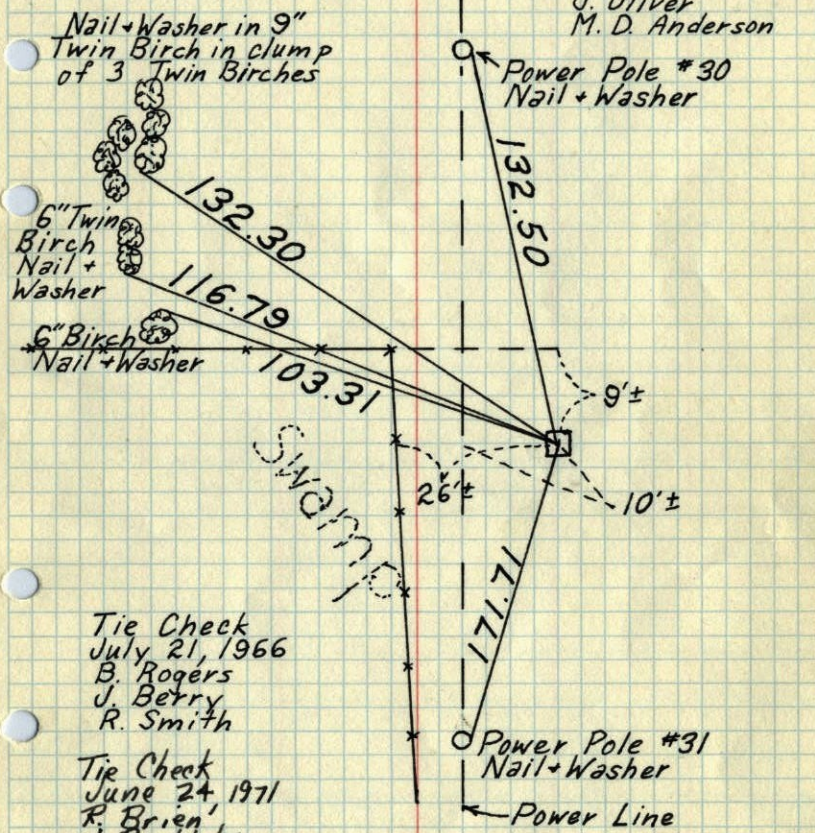 J. Oliver
M. D. Anderson
Nail + Washer in 9"
Twin Birch in clump
of 3 Twin Birches
Power Pole #30
Nail + Washer
132.50
132.30
6" Twin
Birch
Nail +
Washer
116.79
6" Birch
Nail + Washer
103.31
9'±
26'±
10'±
Swamp
171.71
Tie Check
July 21, 1966
B. Rogers
J. Berry
R. Smith
Power Pole #31
Nail + Washer
Tie Check
June 24, 1971
R. Brien
Power Line